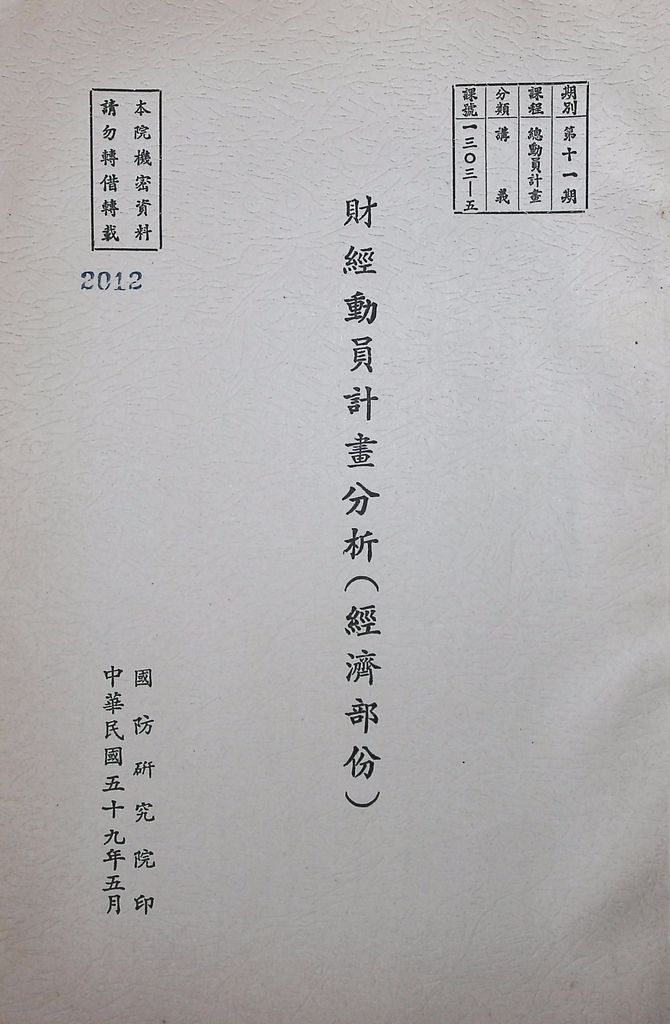 期別 第十一期
課程 總動員計畫
分類 講義
課號 一三〇三—五
財經動員計畫分析(經濟部份)
本院機密資料
請勿轉借轉載
2012
國防研究院印
中華民國五十九年五月